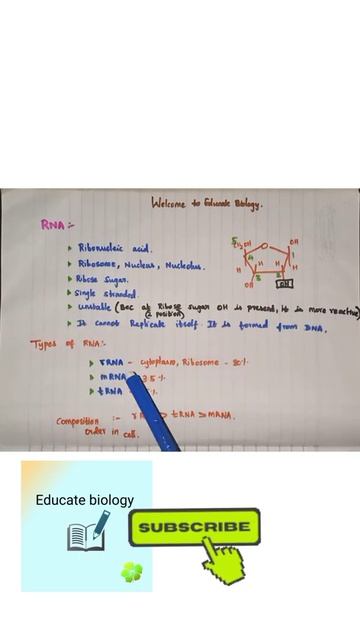 Welcome to Educate Biology.
RNA :-
Ribonucleic acid.
Ribosome, Nucleus, Nucleolus.
Ribose Sugar.
Single stranded.
unstable (Bec at Ribose sugar OH is present, it is more reactive
(2 position)
It cannot Replicate itself. It is formed from DNA.
5
CH2OH
O
OH
4
1
H
H
H
H
3
2
OH
OH
Types of RNA:-
rRNA - cytoplasm, Ribosome - 80%
mRNA 3.5%
tRNA
Composition :- > tRNA > mRNA.
order in cell.
Educate biology
SUBSCRIBE